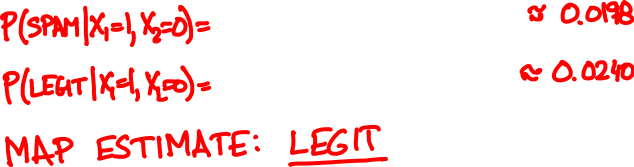 P(SPAM|X₁=1, X₂=0)= ≈ 0.0198
P(LEGIT|X₁=1, X₂=0)= ≈ 0.0240
MAP ESTIMATE: LEGIT